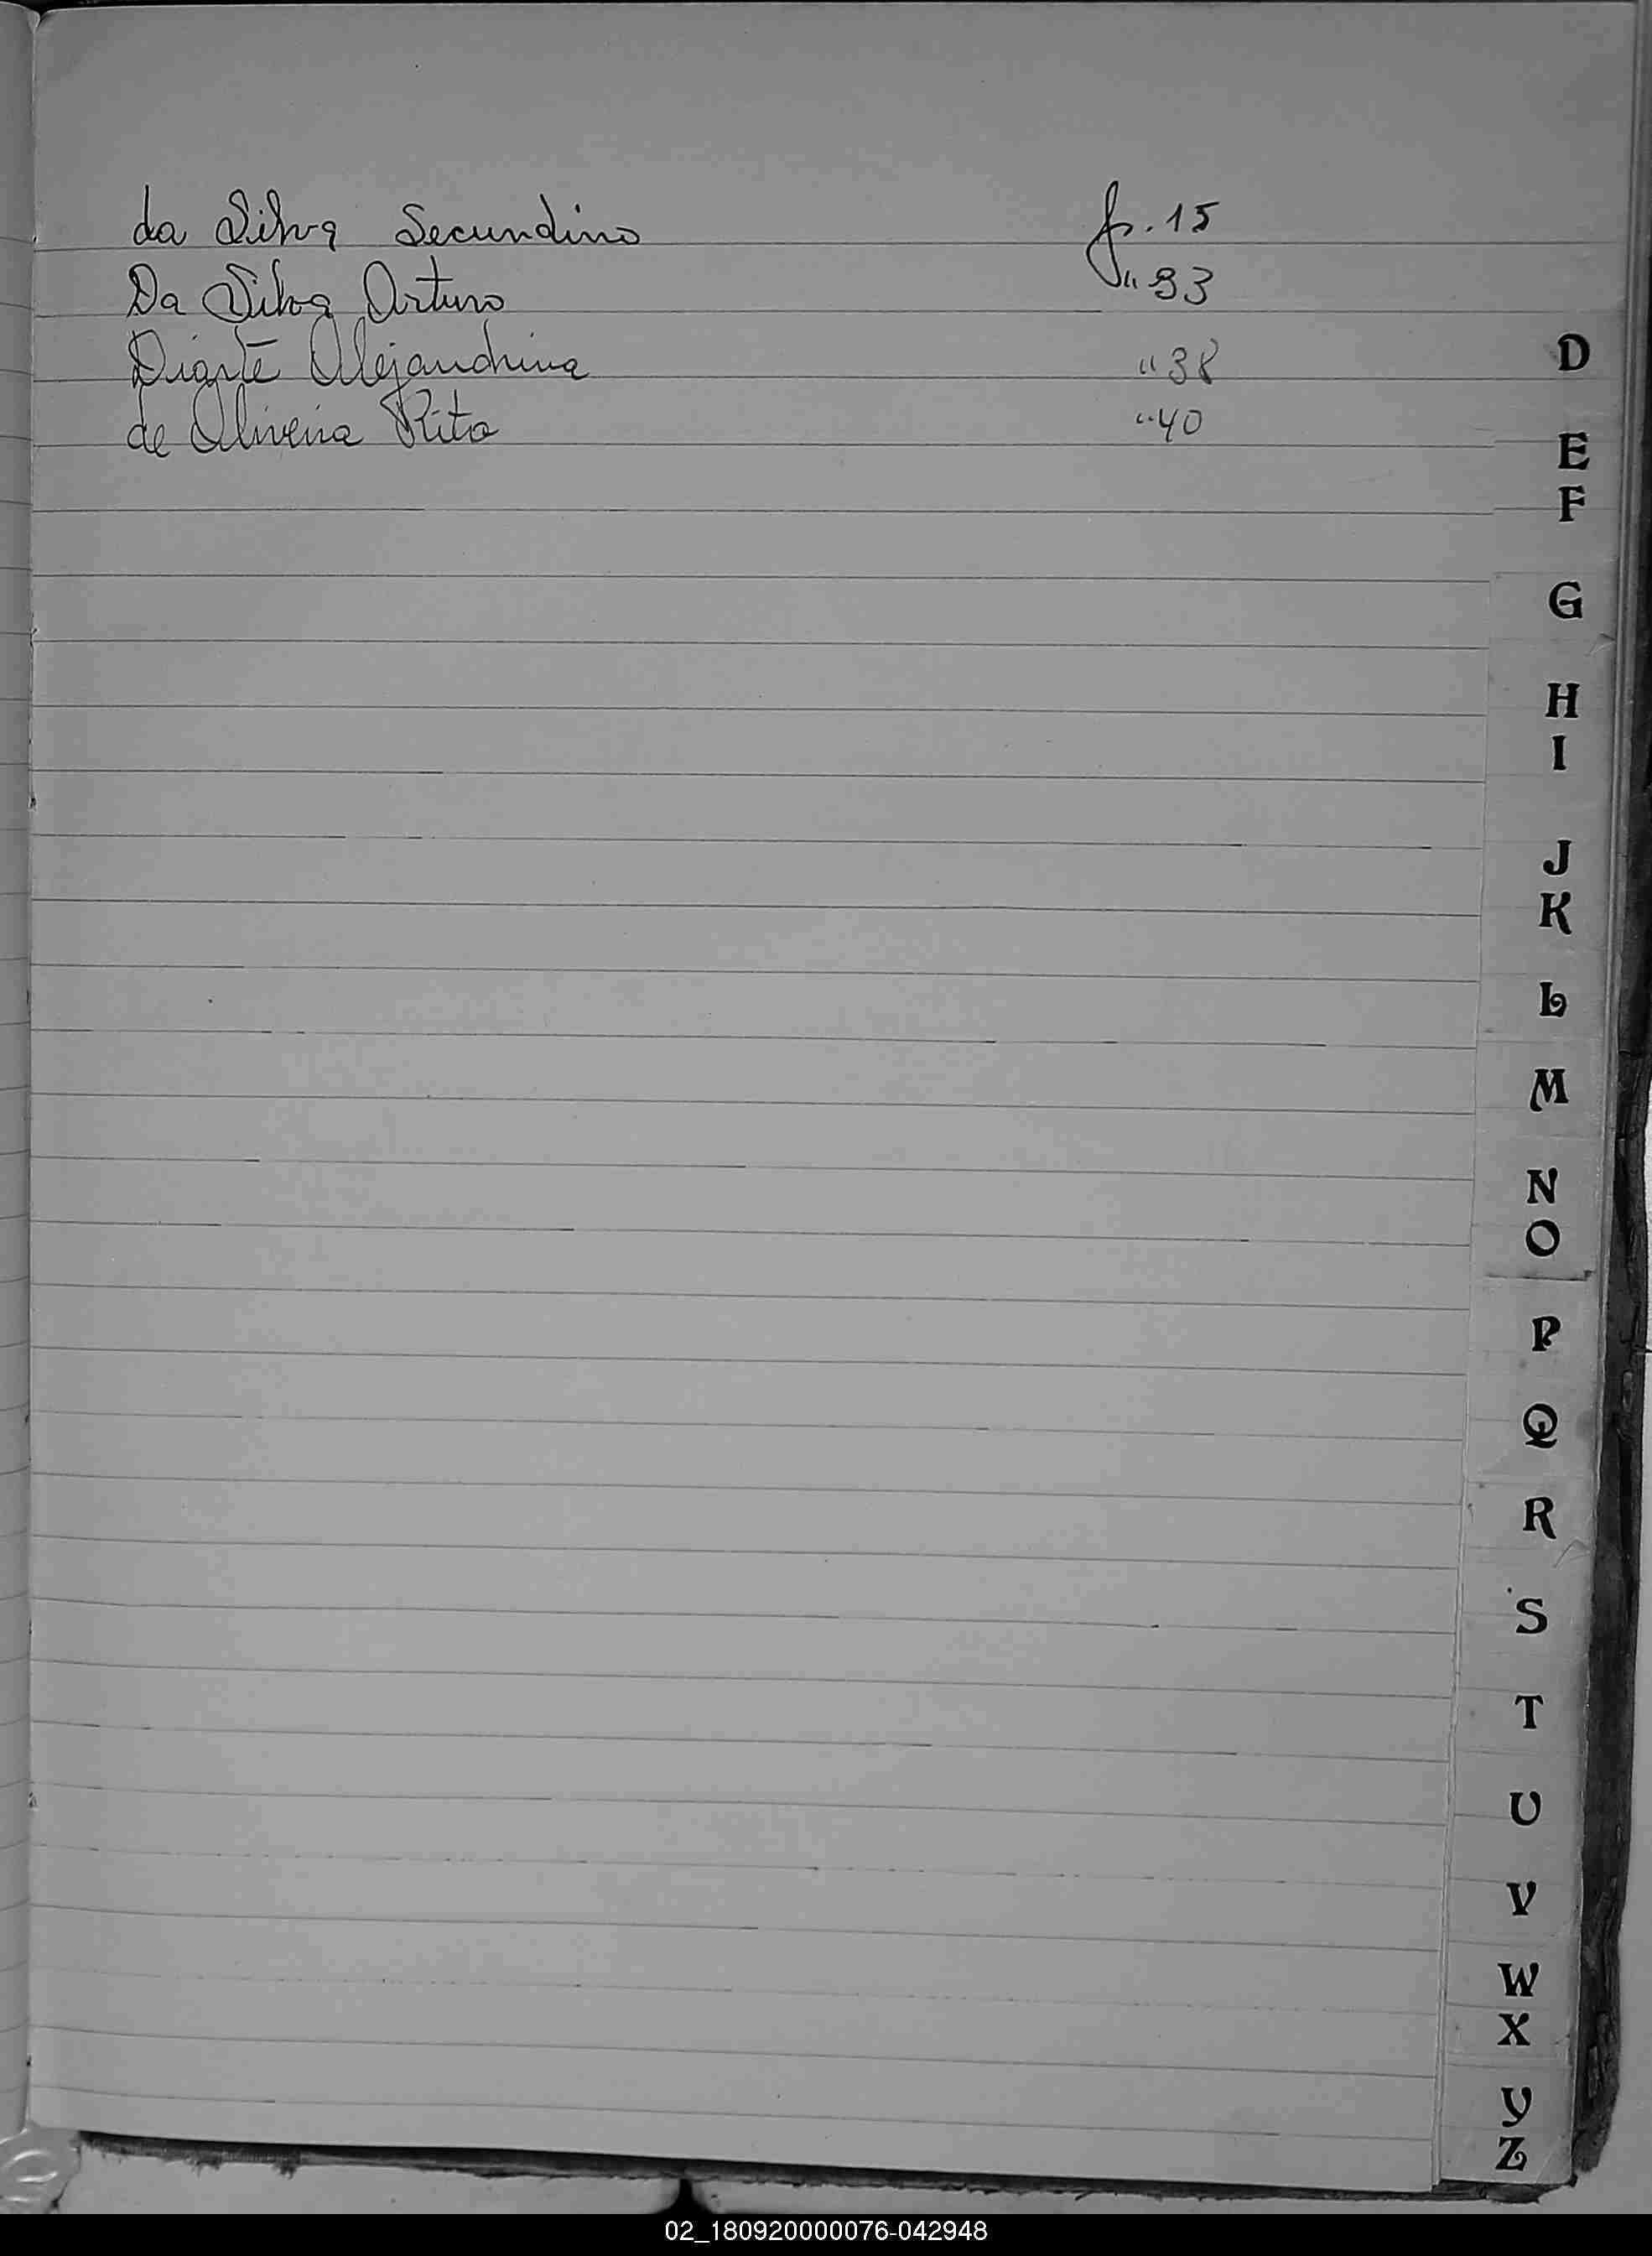 da Silva Secundino fs. 15
Da Silva Arturo " 33
Diarte Alejandrina " 38
de Oliveira Rita " 40
D
E
F
G
H
I
J
K
L
M
N
O
P
Q
R
S
T
U
V
W
X
Y
Z
02_180920000076-042948